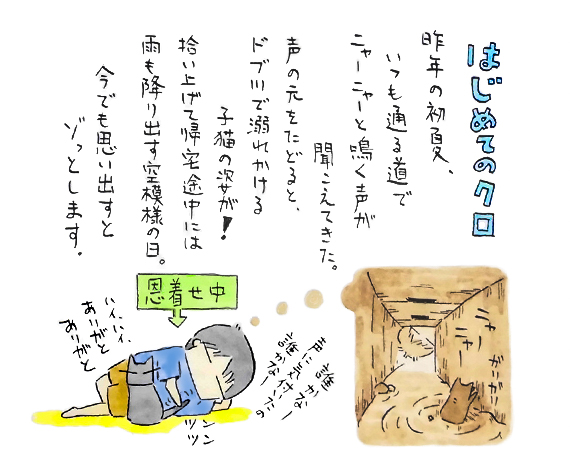 はじめてのクロ
昨年の初夏、
いつも通る道で
ニャーニャーと鳴く声が
聞こえてきた。
声の元をたどると、
ドブ川で溺れかける
子猫の姿が!
拾い上げて帰宅途中には
雨も降り出す空模様の日。
今でも思い出すと
ゾっとします.
恩着せ中
ニャー
ニャー
ガリガリ
誰かなー
声に気付いたの
誰かなー
ハイ、ハイ、
ありがと
ありがと
ツンツン